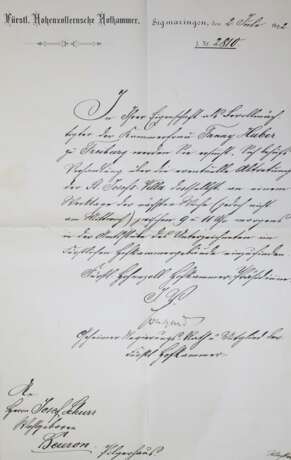 Fürstl. Hohenzollernsche Hofkammer.
Sigmaringen, den 2. Juli
J. Nr. 2810
In Ihrer Eigenschaft als Bevollmäch-
tigter der Kammerfrau Fanny Huber
zu werden Sie ersucht, Sich behufs
Besprechung über die eventuelle Abtretung
der St. Josefs Villa daselbst an einem
Werktage der nächsten Woche (jedoch nicht
am Mittwoch) zwischen 9 u 11 Uhr morgens
in der Amtsstube des Unterzeichneten im
Fürstlichen Hofkammergebäude einzufinden
Fürstl Hohenzoll Hofkammer Präsidium
I. V.
Geheimer Regierungs-Rath u Mitglied der
Fürstl Hofkammer.
An
Herrn Josef Schurr
Wohlgeboren
Beuron.
Pilgerhaus